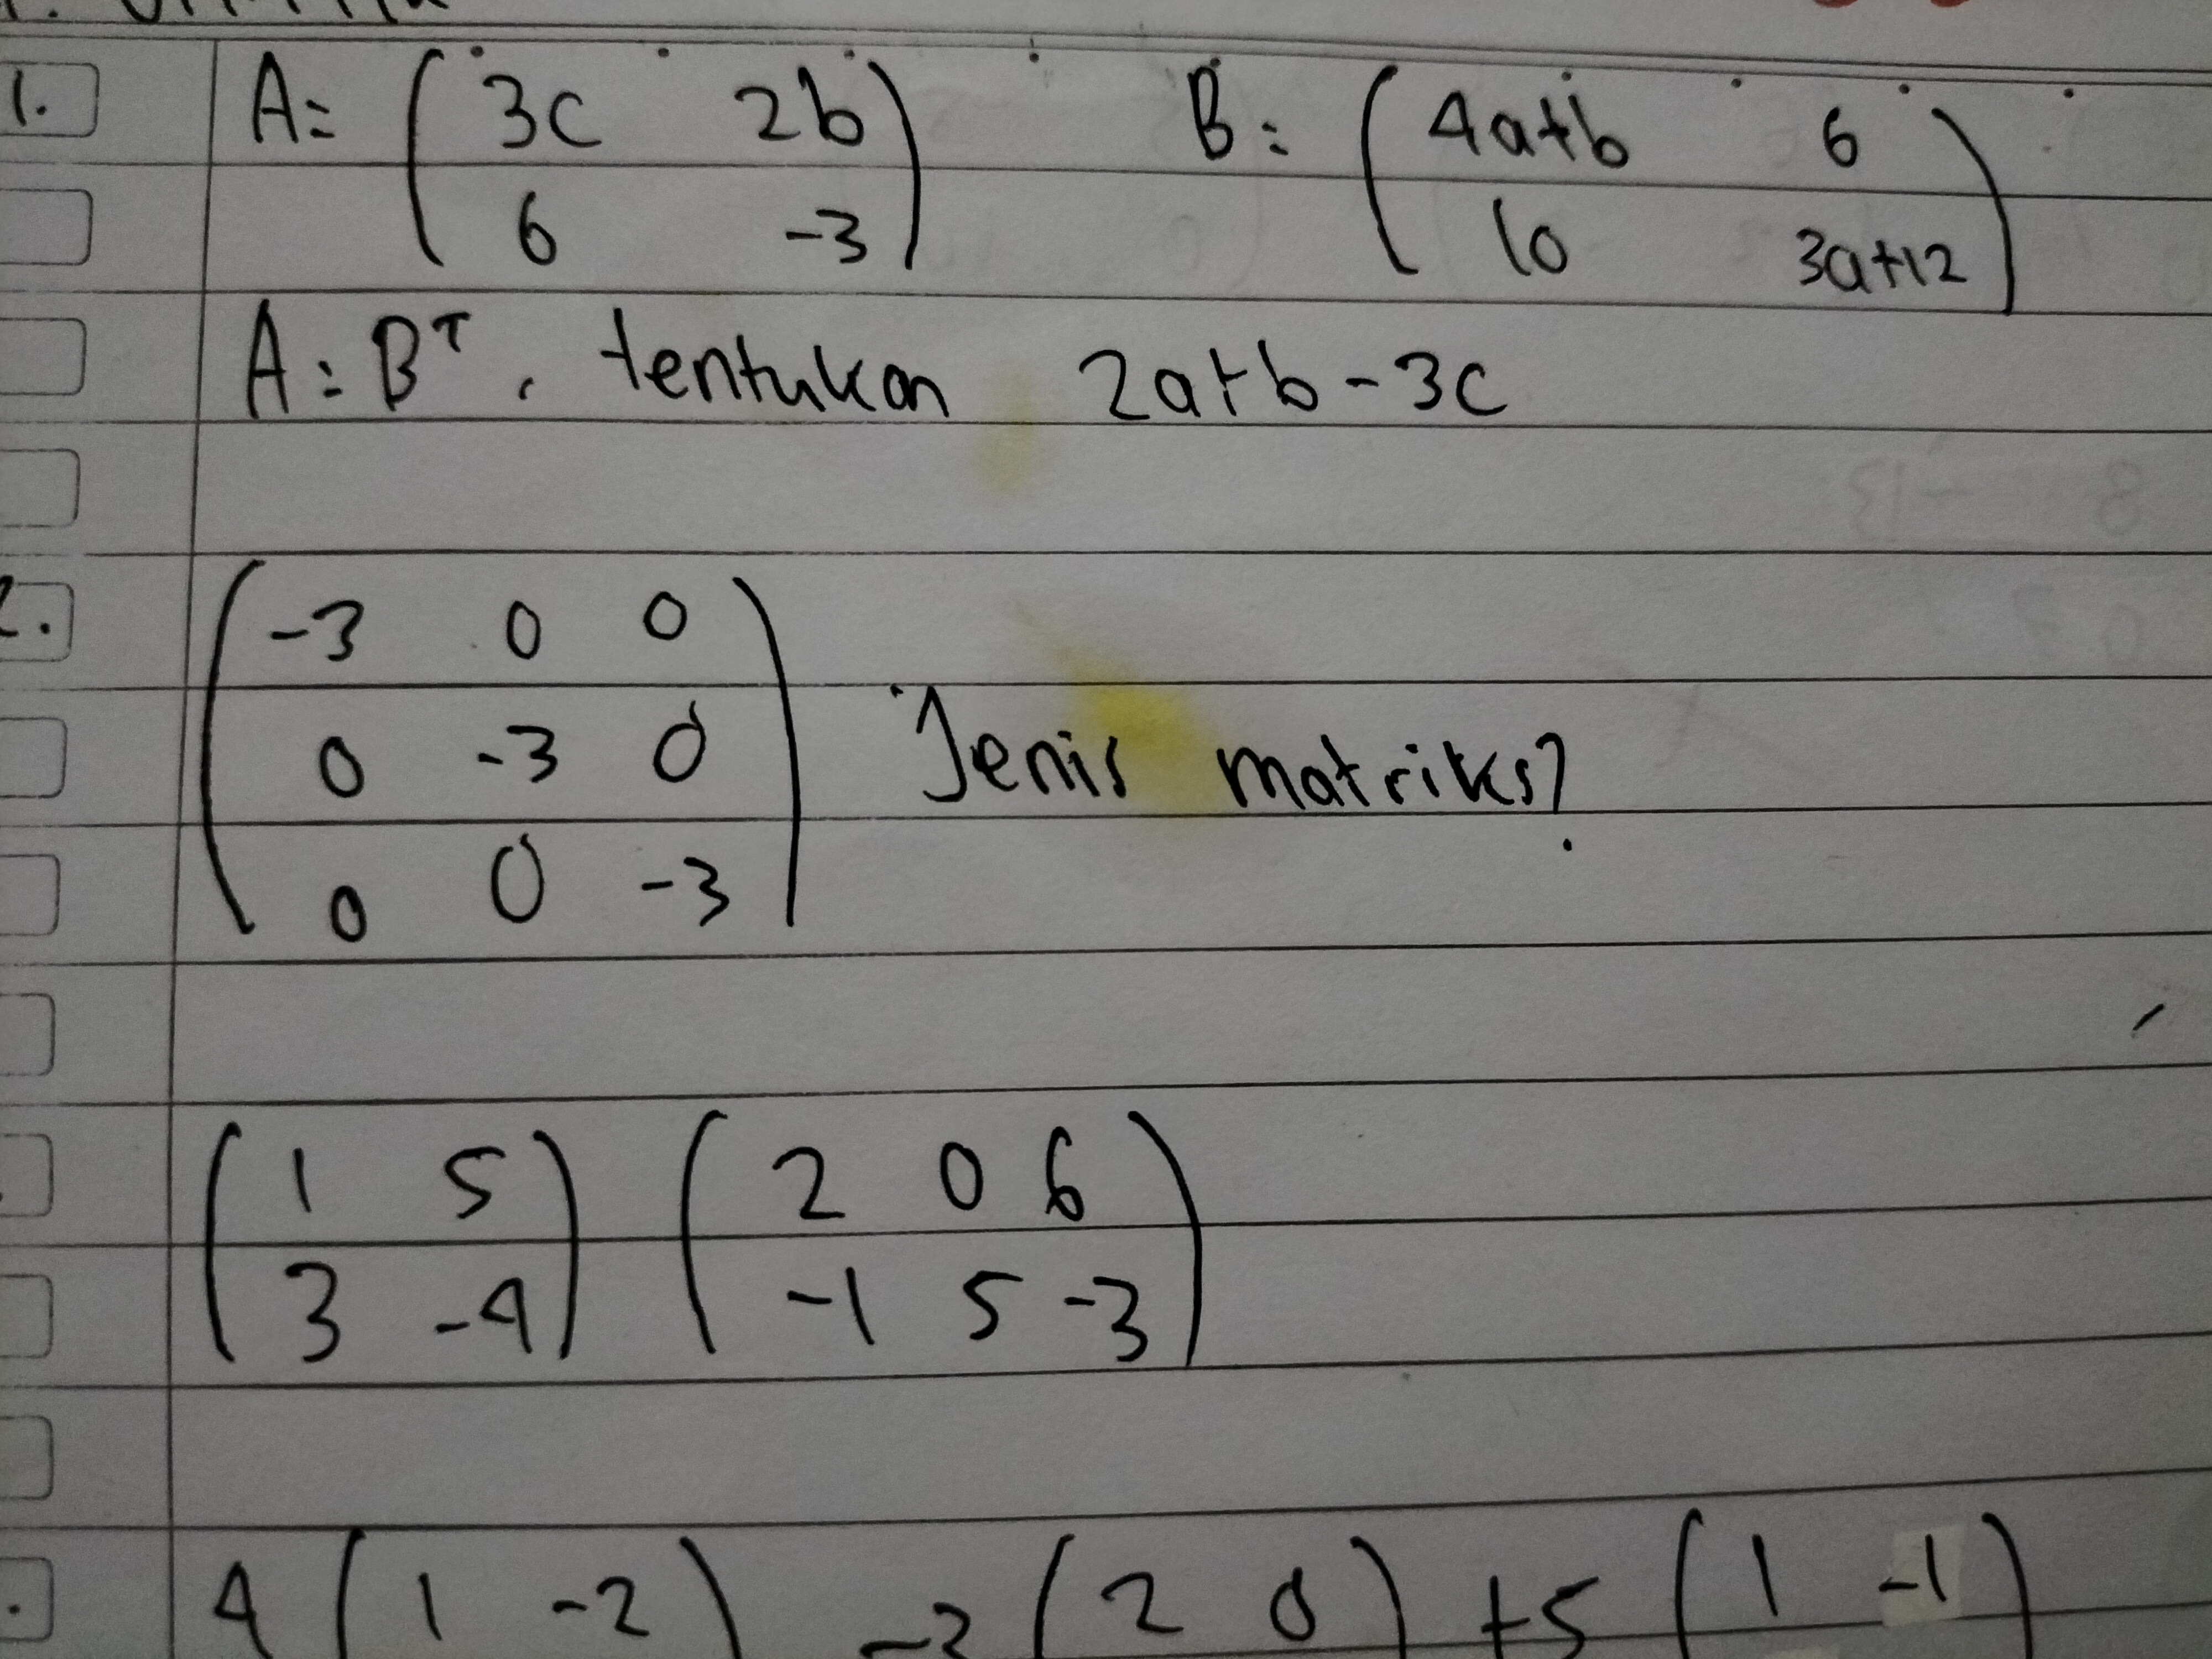 1. A = ( 3c 2b ) B = ( 4a+b 6 )
( 6 -3 ) ( 10 3a+12 )
A = Bᵀ, tentukan 2a+b-3c
2. ( -3 0 0 )
( 0 -3 0 ) Jenis matriks?
( 0 0 -3 )
( 1 5 ) ( 2 0 6 )
( 3 -4 ) ( -1 5 -3 )
4 ( 1 -2 ) ( 2 0 ) +5 ( 1 -1 )